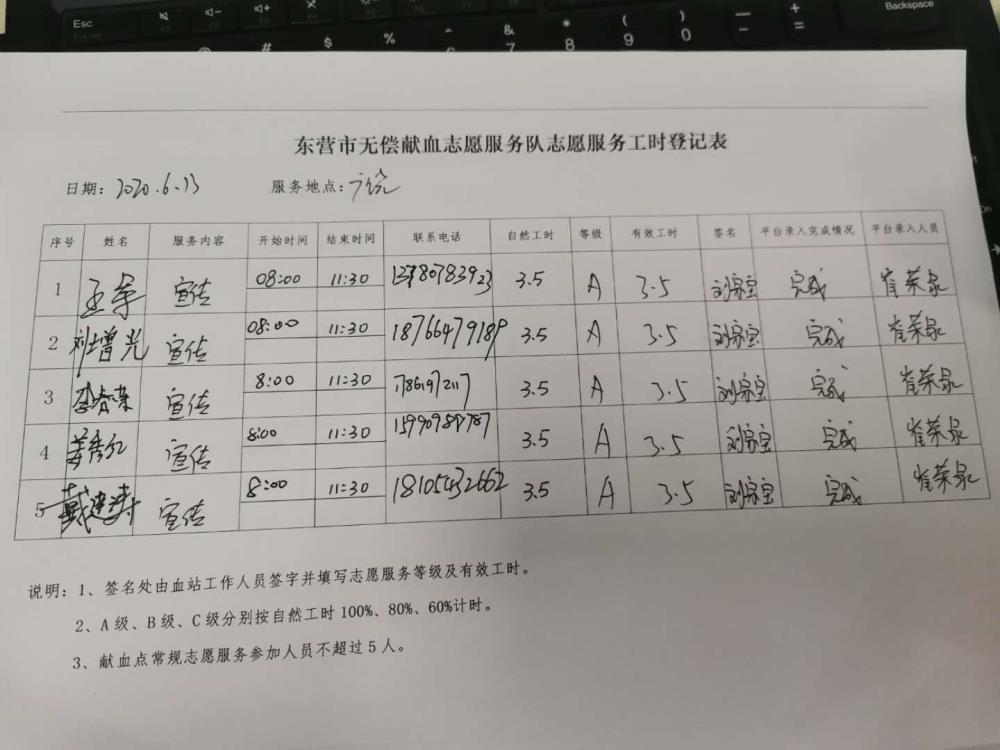 Esc
Backspace
# $ % & * ( ) — +
7 8 9 0 - =
东营市无偿献血志愿服务队志愿服务工时登记表
日期：2020.6.13 服务地点：广饶
序号 姓名 服务内容 开始时间 结束时间 联系电话 自然工时 等级 有效工时 签名 平台录入完成情况 平台录入人员
1 宣传 08:00 11:30 3.5 A 3.5 刘家宝 完成 崔荣泉
2 刘增光 宣传 08:00 11:30 18766479189 3.5 A 3.5 刘家宝 完成 崔荣泉
3 李春荣 宣传 8:00 11:30 3.5 A 3.5 刘家宝 完成 崔荣泉
4 姜秀红 宣传 8:00 11:30 3.5 A 3.5 刘家宝 完成 崔荣泉
5 戴建涛 宣传 8:00 11:30 18105432662 3.5 A 3.5 刘家宝 完成 崔荣泉
说明：1、签名处由血站工作人员签字并填写志愿服务等级及有效工时。
2、A 级、B 级、C 级分别按自然工时 100%、80%、60%计时。
3、献血点常规志愿服务参加人员不超过 5 人。